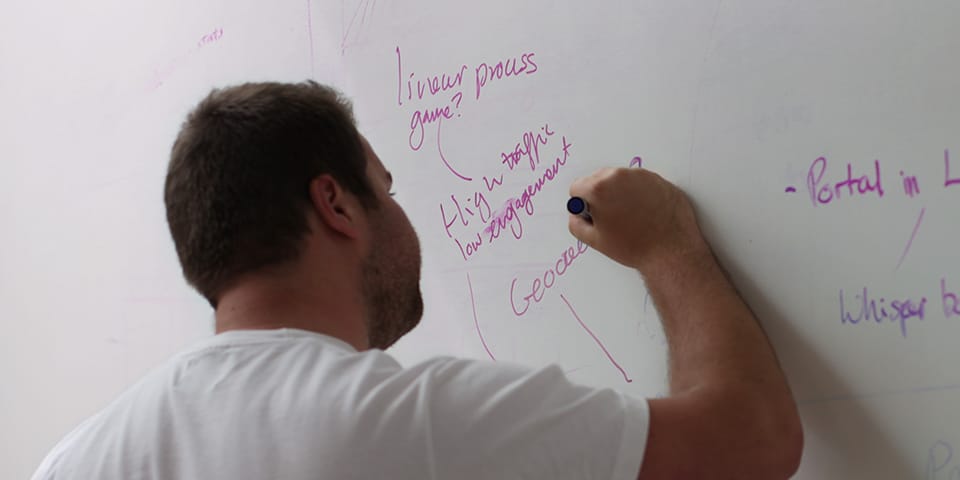 linear process
game?
High traffic
low engagement
- Portal in L
Whisper